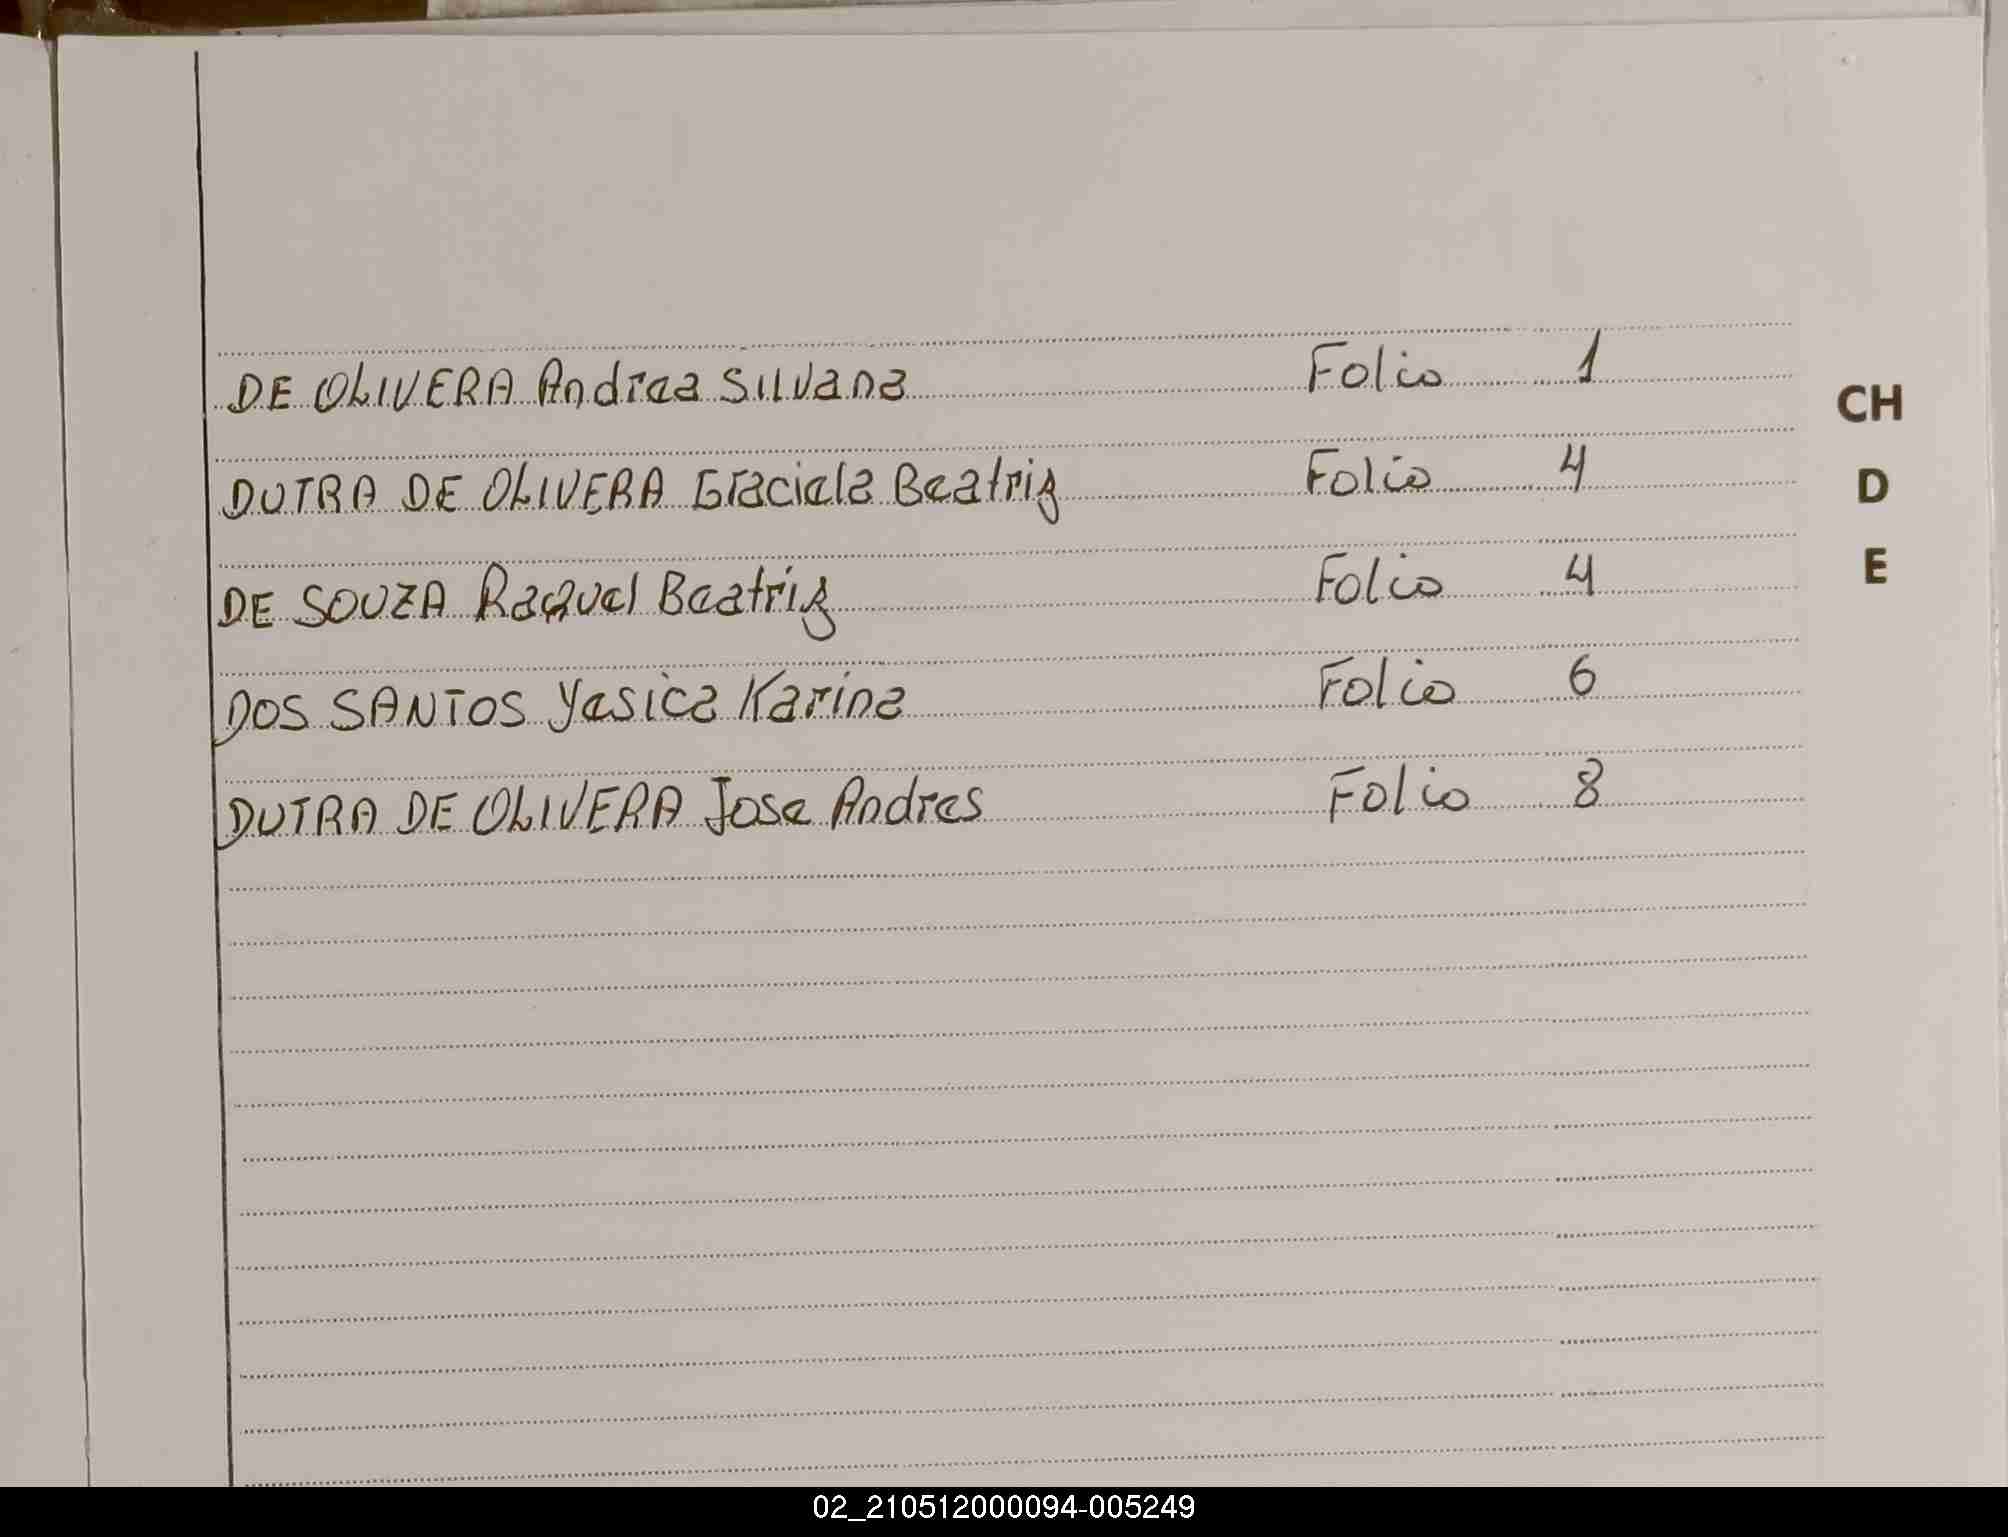 DE OLIVERA Andrea Silvana Folio 1
DUTRA DE OLIVERA Graciela Beatriz Folio 4
DE SOUZA Raquel Beatriz Folio 4
DOS SANTOS Yesica Karina Folio 6
DUTRA DE OLIVERA Jose Andres Folio 8
CH
D
E
02_210512000094-005249